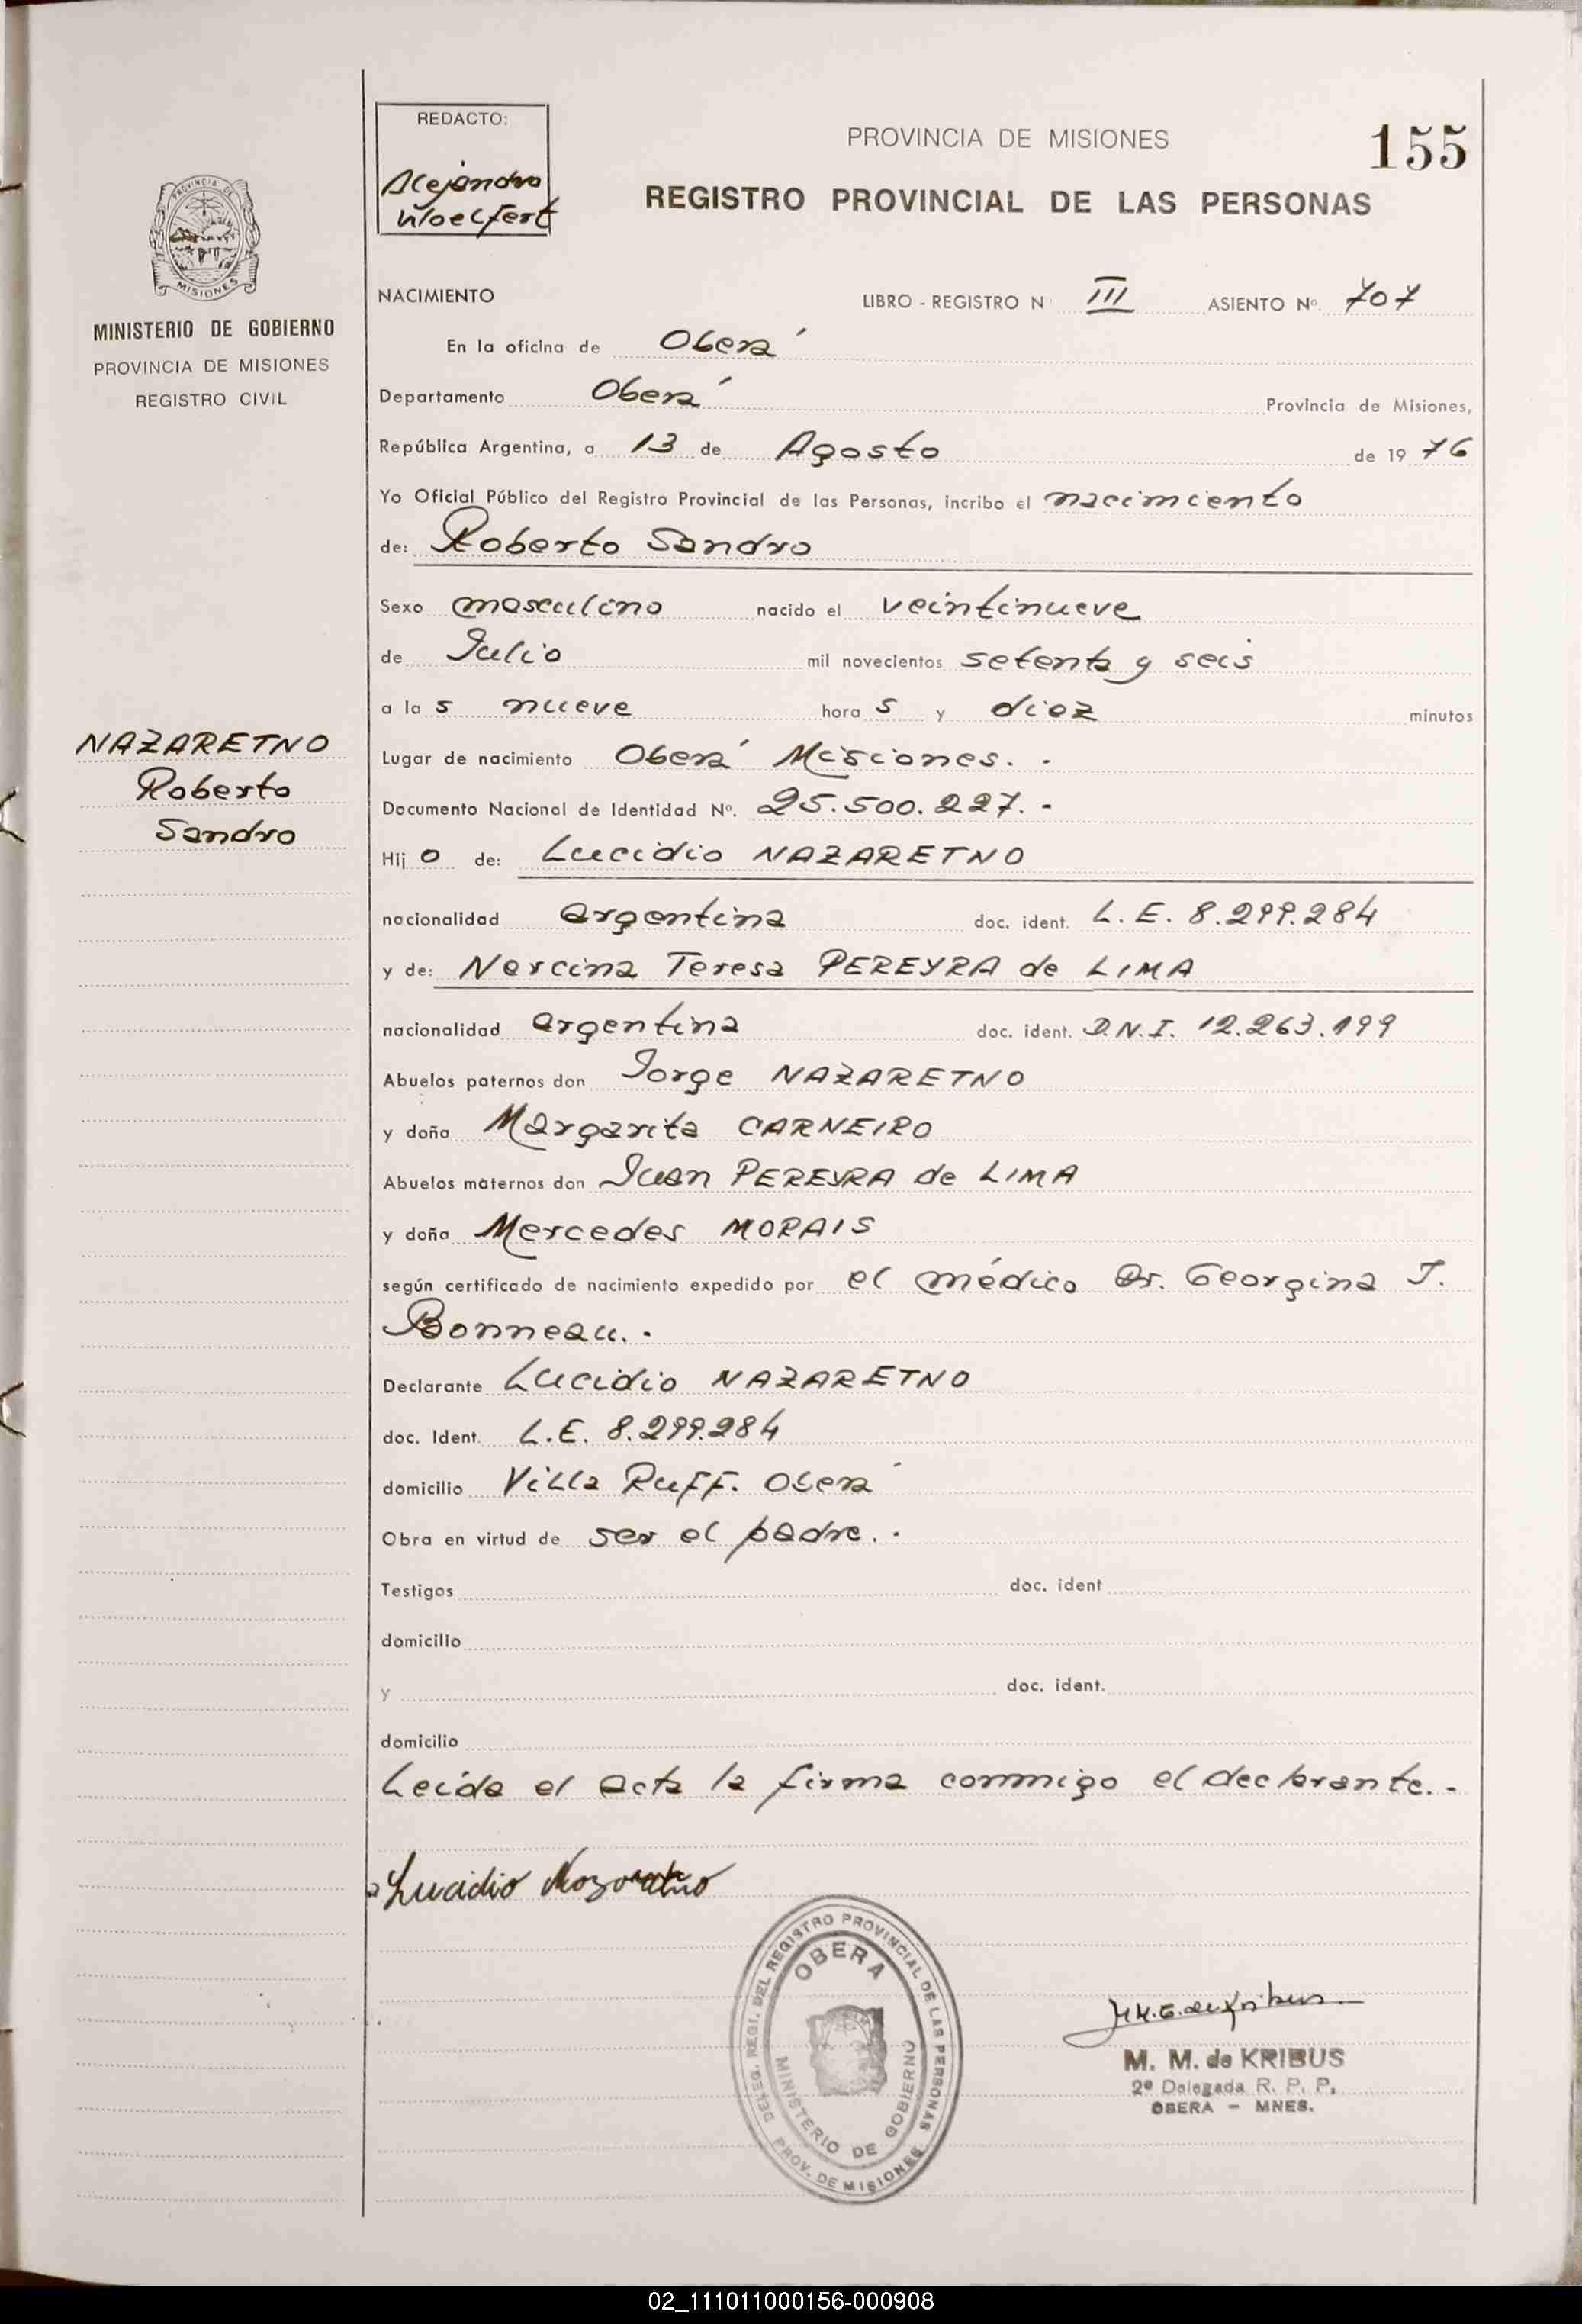 REDACTO:
Alejandro
Woelfert
PROVINCIA DE MISIONES
155
REGISTRO PROVINCIAL DE LAS PERSONAS
PROVINCIA DE
MISIONES
MINISTERIO DE GOBIERNO
PROVINCIA DE MISIONES
REGISTRO CIVIL
NAZARETNO
Roberto
Sandro
NACIMIENTO LIBRO - REGISTRO N° III ASIENTO Nº. 707
En la oficina de Oberá
Departamento Oberá Provincia de Misiones,
República Argentina, a 13 de Agosto de 1976
Yo Oficial Público del Registro Provincial de las Personas, incribo el nacimiento
de: Roberto Sandro
Sexo masculino nacido el veintinueve
de Julio mil novecientos setenta y seis
a las nueve horas y diez minutos
Lugar de nacimiento Oberá Misiones. -
Documento Nacional de Identidad Nº. 25.500.227. -
Hijo de: Lucidio NAZARETNO
nacionalidad argentina doc. ident. L. E. 8.299.284
y de: Norcina Teresa PEREYRA de LIMA
nacionalidad argentina doc. ident. D.N.I. 12.263.199
Abuelos paternos don Jorge NAZARETNO
y doña Margarita CARNEIRO
Abuelos maternos don Juan PEREYRA de LIMA
y doña Mercedes MORAIS
según certificado de nacimiento expedido por el médico Dr. Georgina J.
Bonneau. -
Declarante Lucidio NAZARETNO
doc. Ident. L.E. 8.299.284
domicilio Villa Ruff. Oberá
Obra en virtud de ser el padre. -
Testigos doc. ident
domicilio
y doc. ident.
domicilio
Leída el acta la firma conmigo el declarante. -
Lucidio Nazaretno
DELEG. REGI. DEL REGISTRO PROVINCIAL DE LAS PERSONAS
OBERA
MINISTERIO DE GOBIERNO
PROV. DE MISIONES
M. M. de KRIBUS
2º Delegada R. P. P.
OBERA - MNES.
02_111011000156-000908